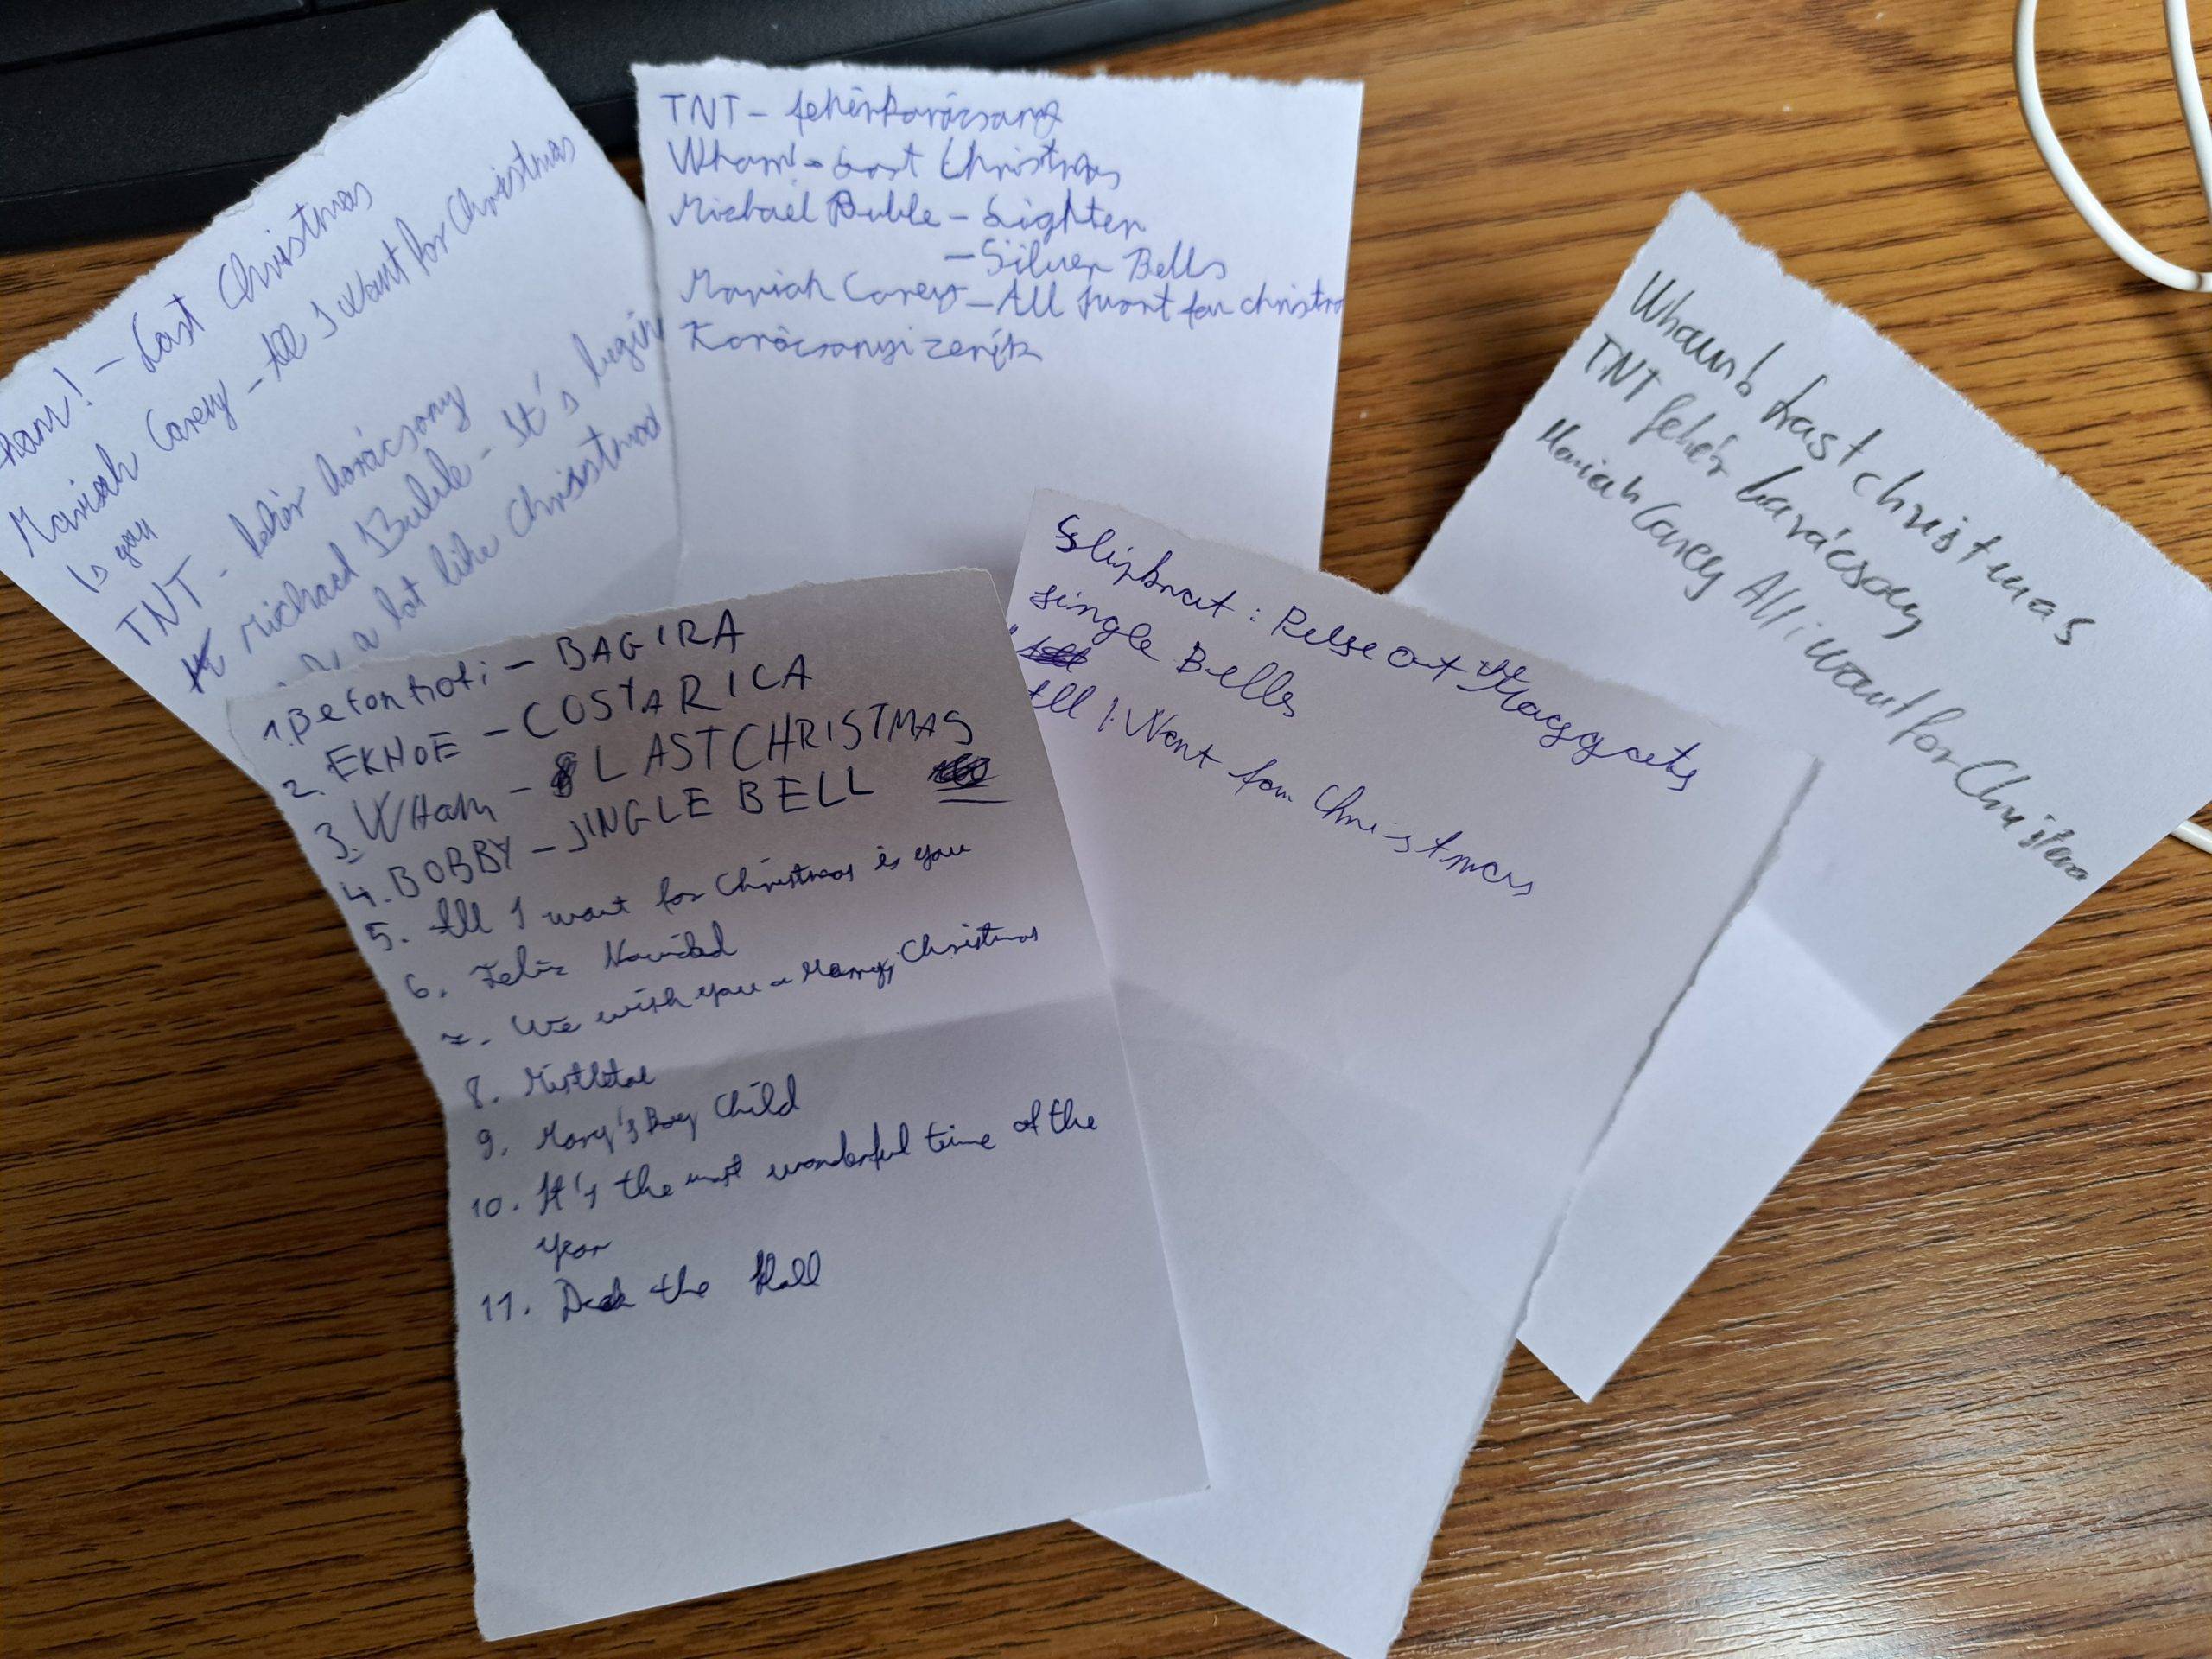 ham! - Last Christmas
Mariah Carey - All I Want for Christmas
Is you
TNT - fehér karácsony
Michael Buble - It's begin
a lot like Christmas
TNT - fehérkarácsony
Wham! - Last Christmas
Michael Buble - Lighter
- Silver Bells
Mariah Carey - All I want for christm
Karácsonyi zenék
Wham! Last christmas
TNT fehér karácsony
Mariah Carey All i want for Christm
Slipknot : Pulse Out Maggots
Jingle Bells
All I Want for Christmas
1. Beton Hofi - BAGIRA
2. EKHOE - COSTA RICA
3. WHam - LAST CHRISTMAS
4. BOBBY - JINGLE BELL
5. All I want for Christmas is you
6. Feliz Navidad
7. We wish you a Marry Christmas
8. Mistletoe
9. Mary's Boy Child
10. It's the most wonderful time of the
year
11. Deck the Hall